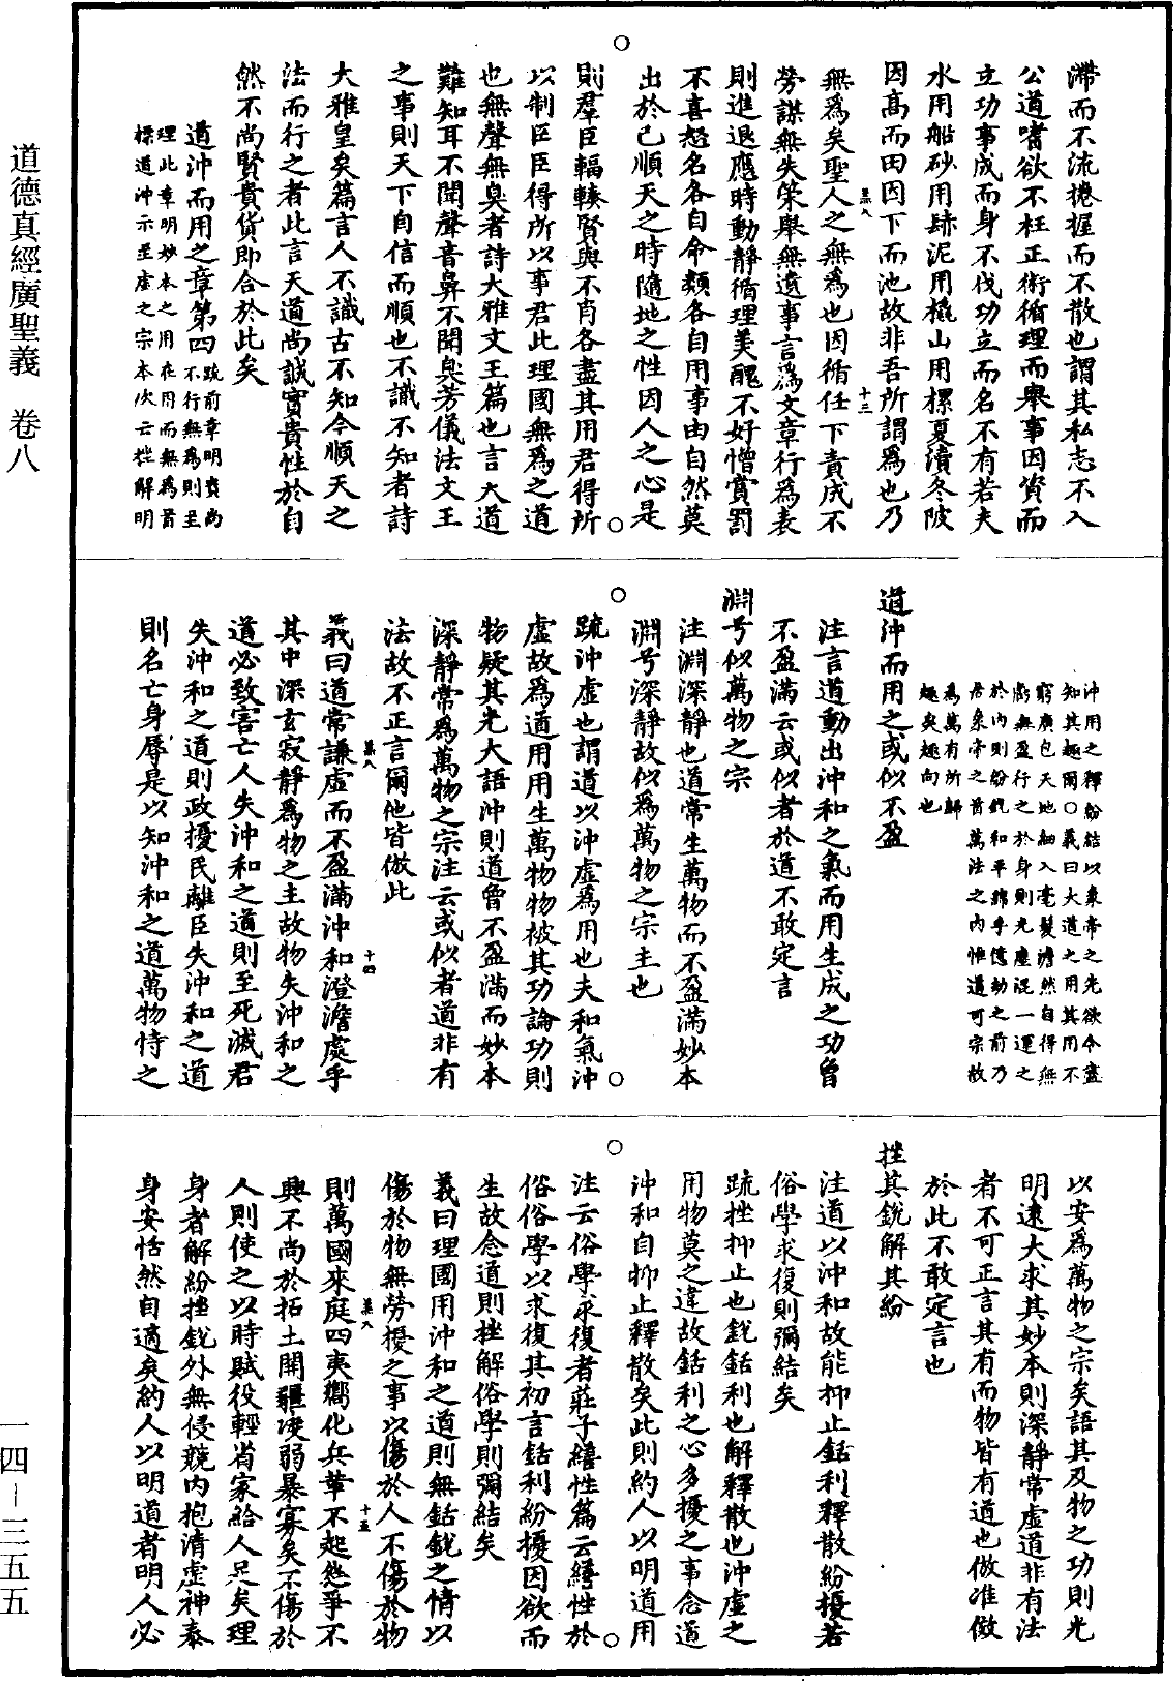 道德真經廣聖義　卷八
滯而不流捲握而不散也謂其私志不入
公道嗜欲不枉正術循理而舉事因資而
立功事成而身不伐功立而名不有若夫
水用船砂用肆泥用橇山用樏夏瀆冬陂
因高而田因下而池故非吾所謂為也乃
無為矣聖人之無為也因循任下責成不
勞謀無失策舉無遺事言為文章行為表
則進退應時動靜循理美醜不好憎賞罰
不喜怒名各自命類各自用事由自然莫
出於己順天之時隨地之性因人之心是
則羣臣輻輳賢與不肖各盡其用君得所
以制臣臣得所以事君此理國無為之道
也無聲無臭者詩大雅文王篇也言大道
難知耳不聞聲音鼻不聞臭芳儀法文王
之事則天下自信而順也不識不知者詩
大雅皇矣篇言人不識古不知今順天之
法而行之者此言天道尚誠實貴性於自
然不尚賢貴貨即合於此矣
道沖而用之章第四
疏前章明賢尚
不行無為則至
理此章明妙本之用在用而無為首
標道沖示至虛之宗本次云挫解明
沖用之釋紛結以象帝之先欲令盡
知其趣爾○義曰大道之用其用不
窮廣包天地細入毫髮澹然自得無
虧無盈行之於身則光塵混一運之
於內則紛銳和平綿乎億劫之前乃
居象帝之首萬法之內惟道可宗故
為萬有所歸
趣矣趣向也
道沖而用之或似不盈
注言道動出沖和之氣而用生成之功曾
不盈滿云或似者於道不敢定言
淵兮似萬物之宗
注淵深靜也道常生萬物而不盈滿妙本
淵兮深靜故似為萬物之宗主也
疏沖虛也謂道以沖虛為用也夫和氣沖
虛故為道用用生萬物物被其功論功則
物疑其光大語沖則道曾不盈滿而妙本
深靜常為萬物之宗注云或似者道非有
法故不正言爾他皆倣此
義曰道常謙虛而不盈滿沖和澄澹處乎
其中深玄寂靜為物之主故物失沖和之
道必致害亡人失沖和之道則至死滅君
失沖和之道則政擾民離臣失沖和之道
則名亡身辱是以知沖和之道萬物恃之
以安為萬物之宗矣語其及物之功則光
明遠大求其妙本則深靜常虛道非有法
者不可正言其有而物皆有道也倣准倣
於此不敢定言也
挫其銳解其紛
注道以沖和故能抑止銛利釋散紛擾若
俗學求復則彌結矣
疏挫抑止也銳銛利也解釋散也沖虛之
用物莫之違故銛利之心多擾之事念道
沖和自抑止釋散矣此則約人以明道用
注云俗學求復者莊子繕性篇云繕性於
俗俗學以求復其初言銛利紛擾因欲而
生故念道則挫解俗學則彌結矣
義曰理國用沖和之道則無銛銳之情以
傷於物無勞擾之事以傷於人不傷於物
則萬國來庭四夷嚮化兵革不起怨爭不
興不尚於拓土開疆凌弱暴寡矣不傷於
人則使之以時賦役輕省家給人足矣理
身者解紛挫銳外無侵競內抱清虛神泰
身安恬然自適矣約人以明道者明人必
一四-三五五